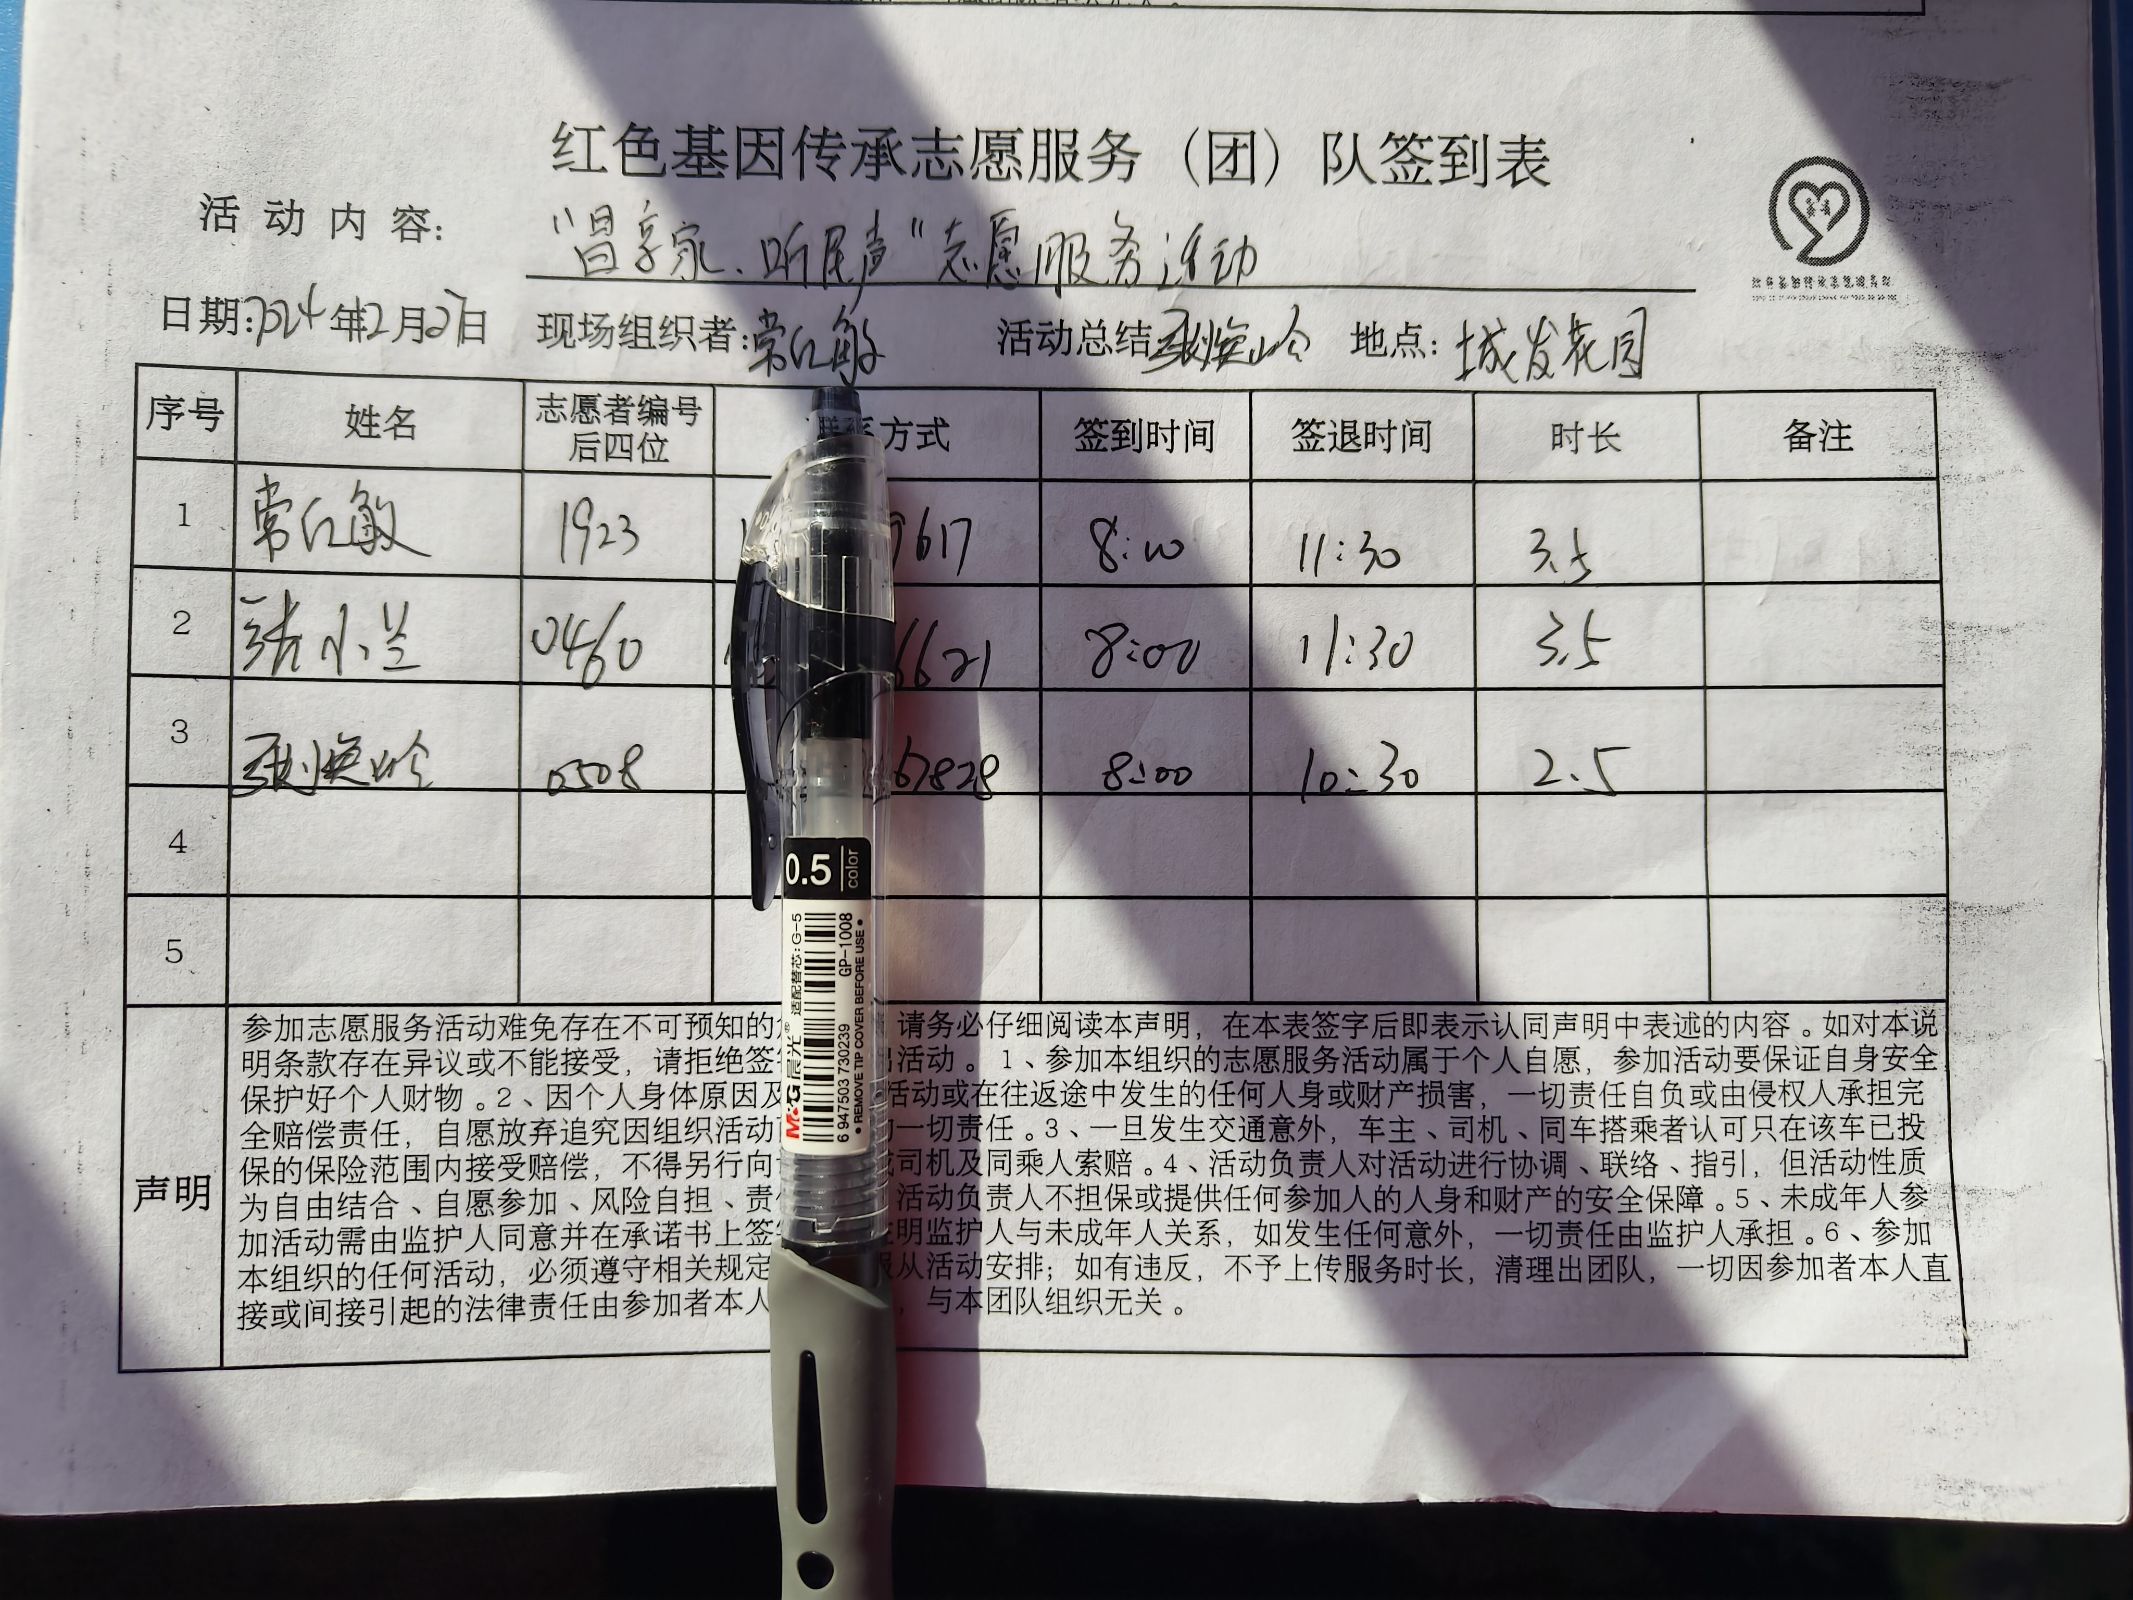 红色基因传承志愿服务（团）队签到表
活动内容：“昌享家、听民声”志愿服务活动
日期：2024年2月27日 现场组织者：常红敏 活动总结 地点：城发花园
序号 姓名 志愿者编号后四位 联系方式 签到时间 签退时间 时长 备注
1 常红敏 1923 9617 8:00 11:30 3.5
2 小兰 0460 6621 8:00 11:30 3.5
3 0508 67828 8:00 10:30 2.5
4
5
声明
参加志愿服务活动难免存在不可预知的 请务必仔细阅读本声明，在本表签字后即表示认同声明中表述的内容。如对本说
明条款存在异议或不能接受，请拒绝签 活动。1、参加本组织的志愿服务活动属于个人自愿，参加活动要保证自身安全
保护好个人财物。2、因个人身体原因及 活动或在往返途中发生的任何人身或财产损害，一切责任自负或由侵权人承担完
全赔偿责任，自愿放弃追究因组织活动 一切责任。3、一旦发生交通意外，车主、司机、同车搭乘者认可只在该车已投
保的保险范围内接受赔偿，不得另行向 司机及同乘人索赔。4、活动负责人对活动进行协调、联络、指引，但活动性质
为自由结合、自愿参加、风险自担、责 活动负责人不担保或提供任何参加人的人身和财产的安全保障。5、未成年人参
加活动需由监护人同意并在承诺书上签 明监护人与未成年人关系，如发生任何意外，一切责任由监护人承担。6、参加
本组织的任何活动，必须遵守相关规定 从活动安排；如有违反，不予上传服务时长，清理出团队，一切因参加者本人直
接或间接引起的法律责任由参加者本人 ，与本团队组织无关。
0.5 color
M&G晨光® 适配替芯：G-5
GP-1008
6 947503 730239
• REMOVE TIP COVER BEFORE USE •